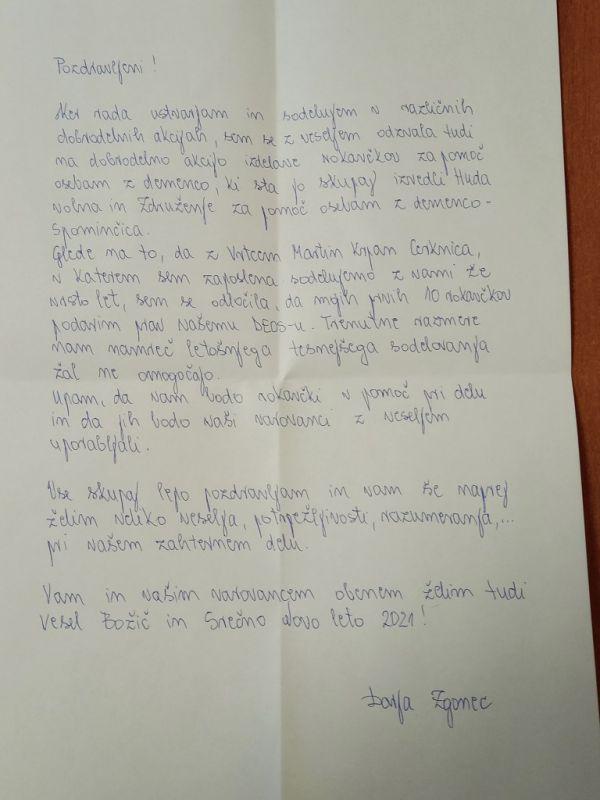 Pozdravljeni!
Ker rada ustvarjam in sodelujem v različnih
dobrodelnih akcijah, sem se z veseljem odzvala tudi
na dobrodelno akcijo izdelave rokavčkov za pomoč
osebam z demenco, ki sta jo skupaj izvedli Huda
volna in Združenje za pomoč osebam z demenco -
Spominčica.
Glede na to, da z Vrtcem Martin Krpan Cerknica,
v katerem sem zaposlena sodelujemo z vami že
vrsto let, sem se odločila, da mojih prvih 10 rokavčkov
podarim prav vašemu DEOS-u. Trenutne razmere
nam namreč letošnjega tesnejšega sodelovanja
žal ne omogočajo.
Upam, da vam bodo rokavčki v pomoč pri delu
in da jih bodo vaši varovanci z veseljem
uporabljali.
Vse skupaj lepo pozdravljam in vam še naprej
želim veliko veselja, potrpežljivosti, razumevanja,...
pri vašem zahtevnem delu.
Vam in vašim varovancem obenem želim tudi
Vesel Božič in Srečno Novo leto 2021!
Darja Zgonec